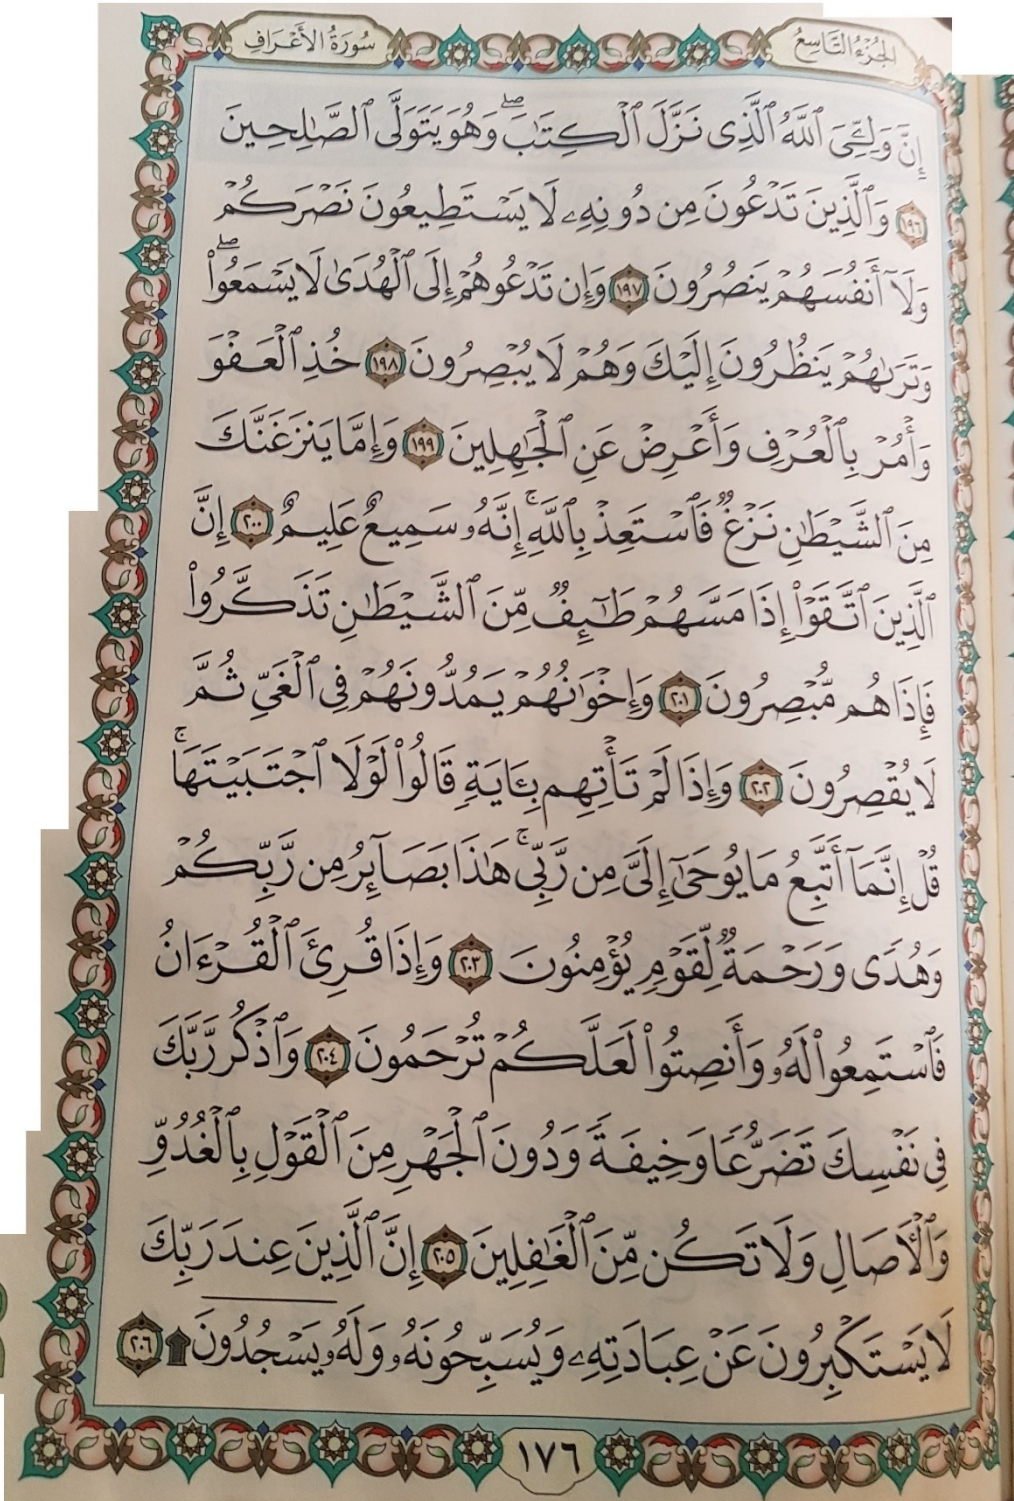 الجُزْءُ التَّاسِعُ
سُورَةُ الأَعْرَافِ
إِنَّ وَلِـِّۧيَ ٱللَّهُ ٱلَّذِي نَزَّلَ ٱلْكِتَٰبَۖ وَهُوَ يَتَوَلَّى ٱلصَّٰلِحِينَ
١٩٦ وَٱلَّذِينَ تَدْعُونَ مِن دُونِهِۦ لَا يَسْتَطِيعُونَ نَصْرَكُمْ
وَلَآ أَنفُسَهُمْ يَنصُرُونَ ١٩٧ وَإِن تَدْعُوهُمْ إِلَى ٱلْهُدَىٰ لَا يَسْمَعُوا۟ۖ
وَتَرَىٰهُمْ يَنظُرُونَ إِلَيْكَ وَهُمْ لَا يُبْصِرُونَ ١٩٨ خُذِ ٱلْعَفْوَ
وَأْمُرْ بِٱلْعُرْفِ وَأَعْرِضْ عَنِ ٱلْجَٰهِلِينَ ١٩٩ وَإِمَّا يَنزَغَنَّكَ
مِنَ ٱلشَّيْطَٰنِ نَزْغٌ فَٱسْتَعِذْ بِٱللَّهِۚ إِنَّهُۥ سَمِيعٌ عَلِيمٌ ٢٠٠ إِنَّ
ٱلَّذِينَ ٱتَّقَوْا۟ إِذَا مَسَّهُمْ طَٰٓئِفٌ مِّنَ ٱلشَّيْطَٰنِ تَذَكَّرُوا۟
فَإِذَا هُم مُّبْصِرُونَ ٢٠١ وَإِخْوَٰنُهُمْ يَمُدُّونَهُمْ فِي ٱلْغَيِّ ثُمَّ
لَا يُقْصِرُونَ ٢٠٢ وَإِذَا لَمْ تَأْتِهِم بِـَٔايَةٍ قَالُوا۟ لَوْلَا ٱجْتَبَيْتَهَاۚ
قُلْ إِنَّمَآ أَتَّبِعُ مَا يُوحَىٰٓ إِلَيَّ مِن رَّبِّيۚ هَٰذَا بَصَآئِرُ مِن رَّبِّكُمْ
وَهُدًى وَرَحْمَةٌ لِّقَوْمٍ يُؤْمِنُونَ ٢٠٣ وَإِذَا قُرِئَ ٱلْقُرْءَانُ
فَٱسْتَمِعُوا۟ لَهُۥ وَأَنصِتُوا۟ لَعَلَّكُمْ تُرْحَمُونَ ٢٠٤ وَٱذْكُر رَّبَّكَ
فِي نَفْسِكَ تَضَرُّعًا وَخِيفَةً وَدُونَ ٱلْجَهْرِ مِنَ ٱلْقَوْلِ بِٱلْغُدُوِّ
وَٱلْـَٔاصَالِ وَلَا تَكُن مِّنَ ٱلْغَٰفِلِينَ ٢٠٥ إِنَّ ٱلَّذِينَ عِندَ رَبِّكَ
لَا يَسْتَكْبِرُونَ عَنْ عِبَادَتِهِۦ وَيُسَبِّحُونَهُۥ وَلَهُۥ يَسْجُدُونَ۩ ٢٠٦
١٧٦